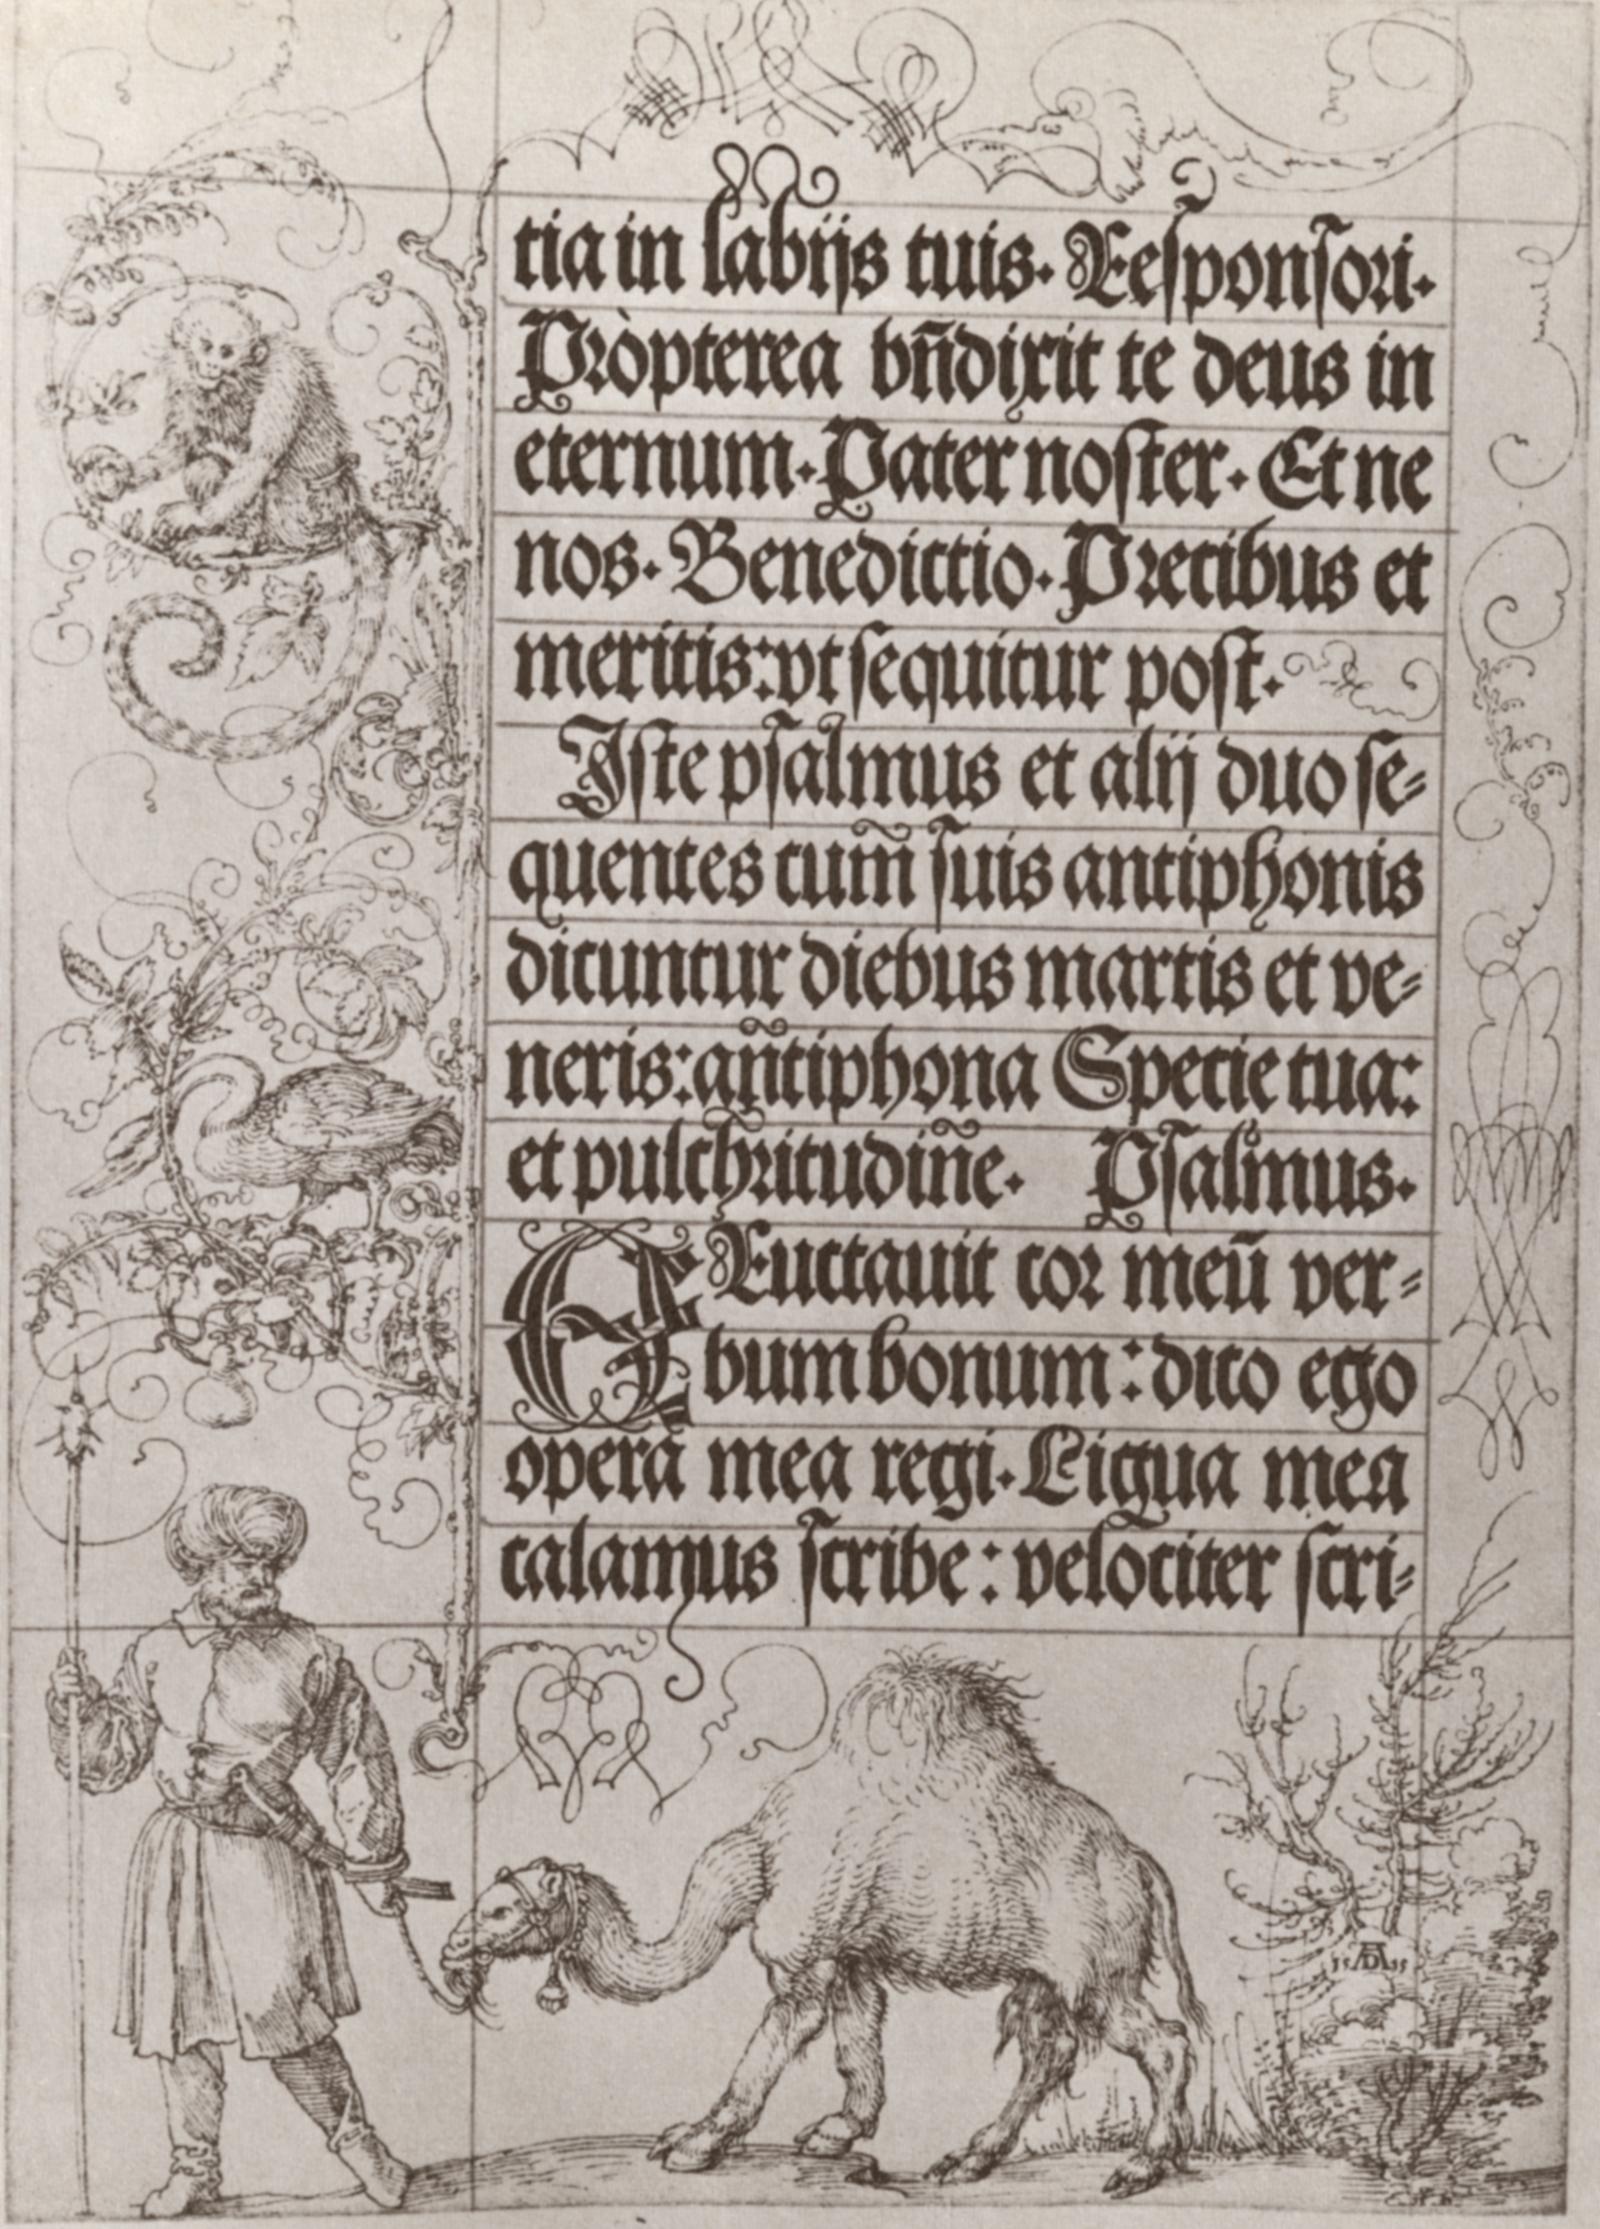 tia in labijs tuis. Responsori.
Pròpterea bñdixit te deus in
eternum. Pater noster. Et ne
nos. Benedictio. Precibus et
meritis: vt sequitur post.
Iste psalmus et alij duo se-
quentes cum̃ suis antiphonis
dicuntur diebus martis et ve-
neris: añtiphona Specie tua:
et pulchritudiñe. Psalmus.
ERuctauit cor meũ ver-
bum bonum: dico ego
opera mea regi. Ligua mea
calamus scribe: velociter scri-
15 AD 15